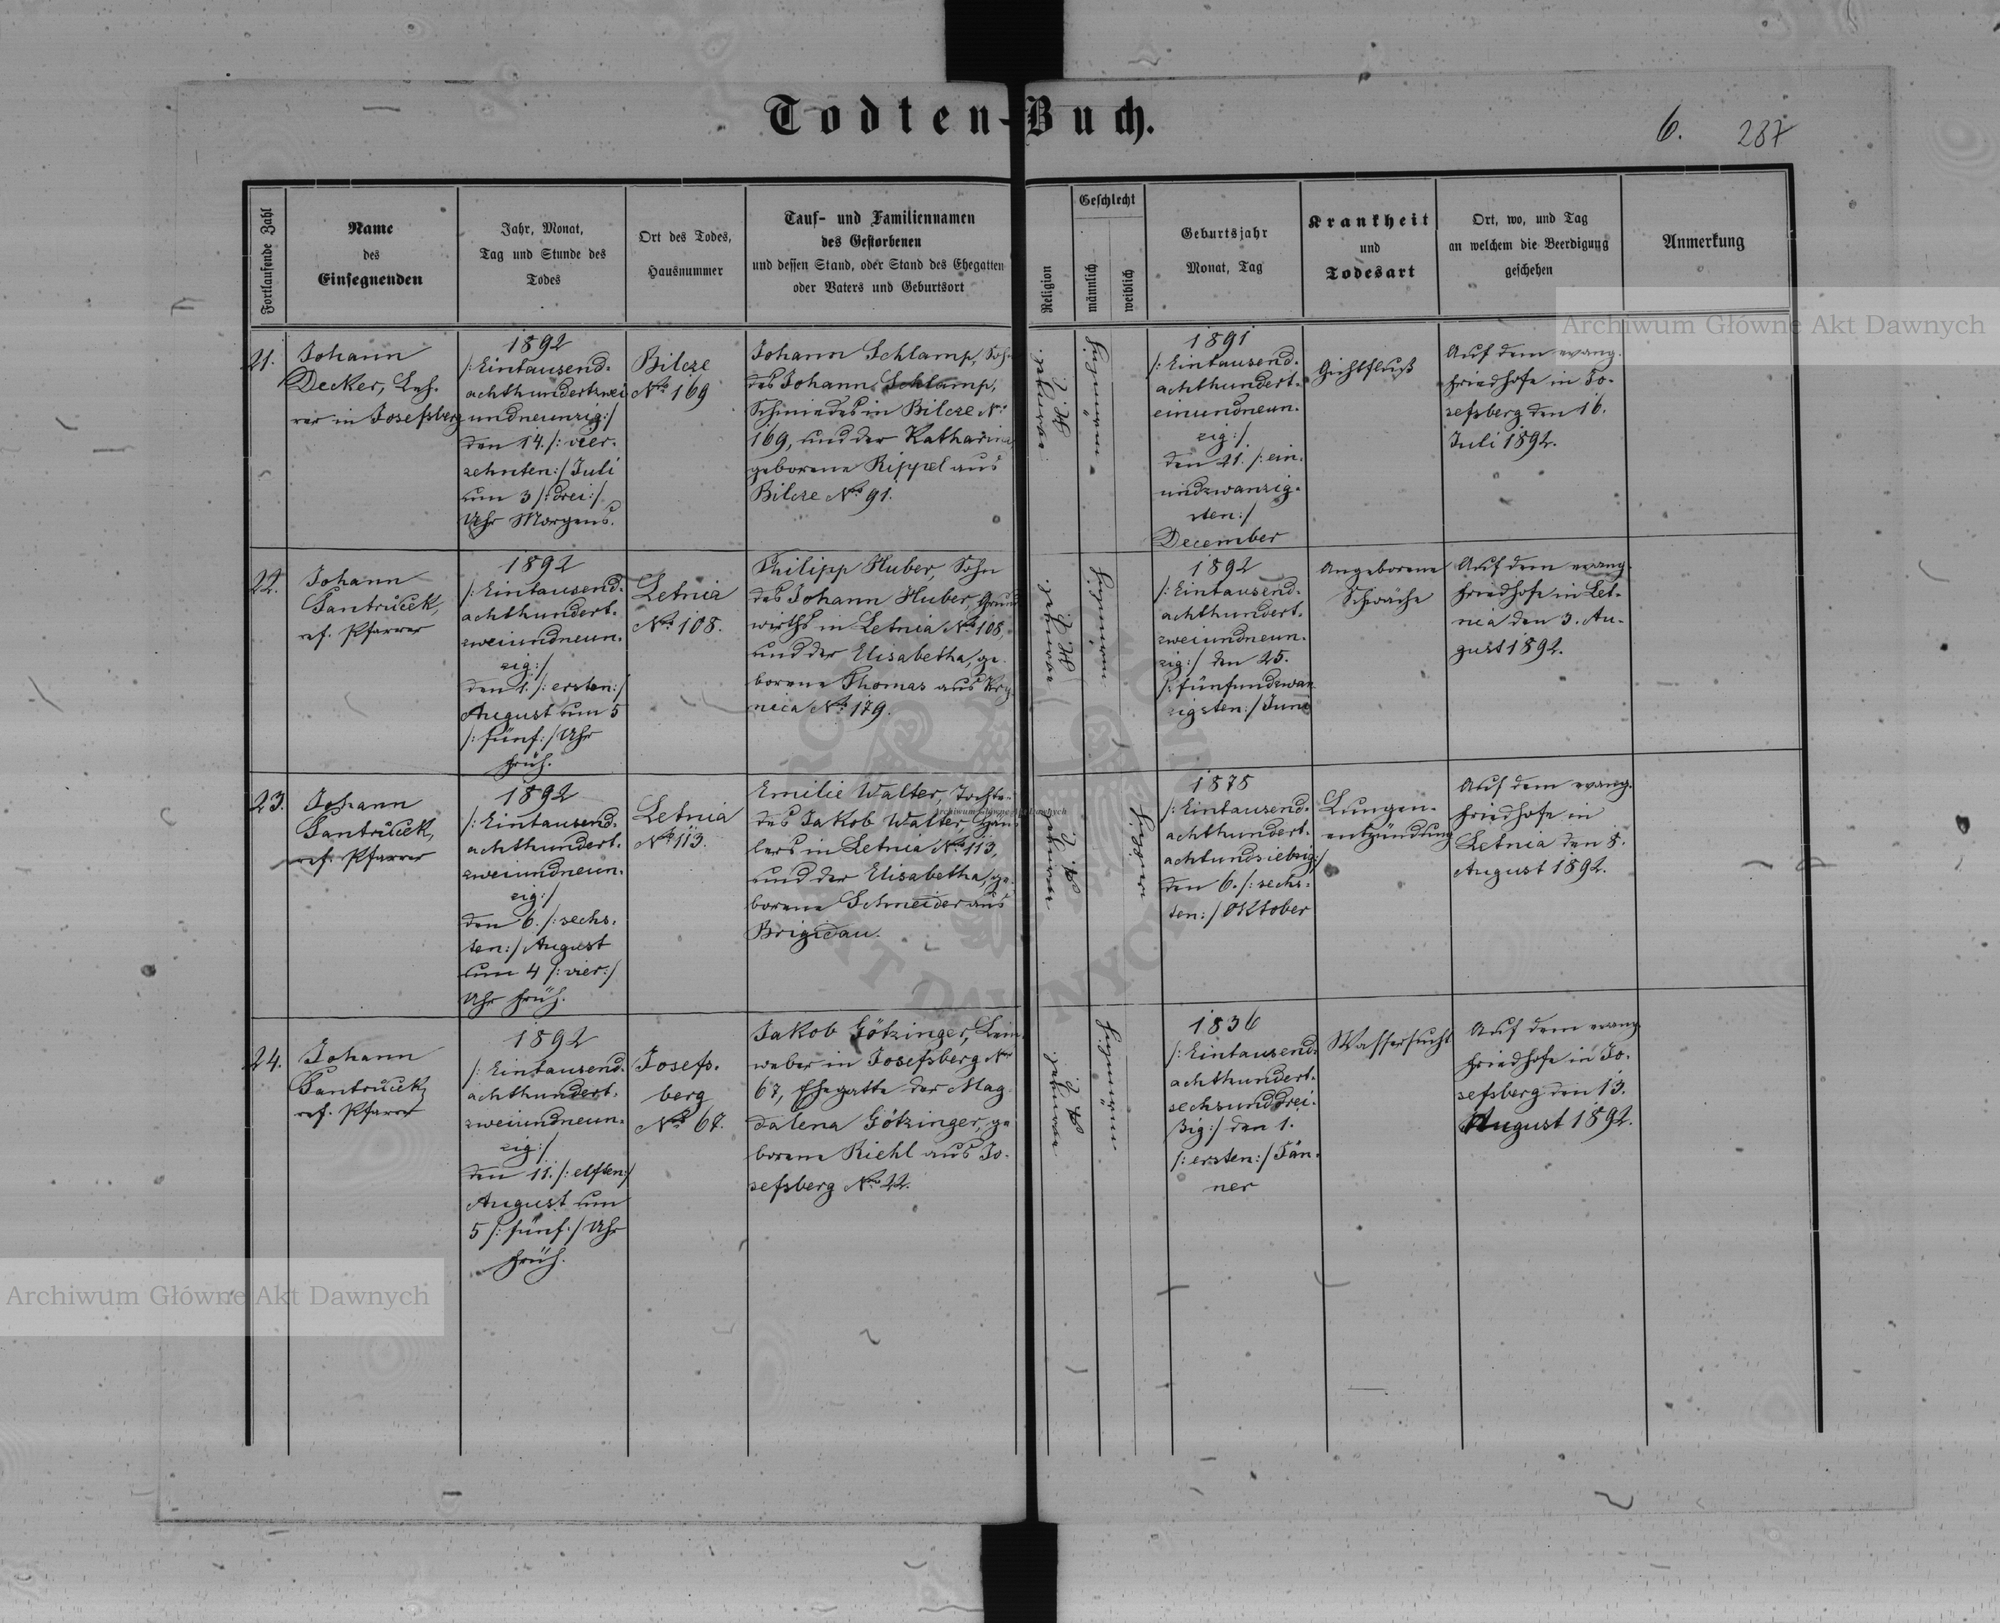 Todten-Buch.
6. 287
Fortlaufende Zahl
Name
des
Einsegnenden
Jahr, Monat,
Tag und Stunde des
Todes
Ort des Todes,
Hausnummer
Tauf- und Familiennamen
des Gestorbenen
und dessen Stand, oder Stand des Ehegatten
oder Vaters und Geburtsort
Religion
Geschlecht
männlich
weiblich
Geburtsjahr
Monat, Tag
Krankheit
und
Todesart
Ort, wo, und Tag
an welchem die Beerdigung
geschehen
Anmerkung
21.
Johann
Decker, Leh-
rer in Josefsberg
1892
/:Eintausend-
achthundertzwei
undneunzig:/
den 14. /:vier-
zehnten:/ Juli
um 3 /:drei:/
Uhr Morgens.
Bilcze
No 169
Johann Schlamp, Soh-
des Johann Schlamp,
Schmiedes in Bilcze No
169, und der Katharina
geborene Rippel aus
Bilcze No 91.
1891
/:Eintausend-
achthundert-
einundneun-
zig:/
den 21. /:ein-
undzwanzig-
sten:/
December
Gichtfluß
Auf dem evang.
Friedhofe in Jo-
sefsberg den 16.
Juli 1892.
22.
Johann
Jantruček,
ref. Pfarrer
1892
/:Eintausend-
achthundert-
zweiundneun-
zig:/
den 1. /:ersten:/
August um 5
/:fünf:/ Uhr
früh.
Letnia
No 108.
Philipp Huber, Sohn
des Johann Huber, Grund
wirths in Letnia No 108,
und der Elisabetha, ge-
borene Thomas aus Kry-
nica No 179.
1892
/:Eintausend-
achthundert-
zweiundneun-
zig:/ den 25.
/:fünfundzwan
zigsten:/ Juni
Angeborene
Schwäche
Auf dem evang.
Friedhofe in Let-
nia den 3. Au-
gust 1892.
23.
Johann
Jantruček,
ref. Pfarrer
1892
/:Eintausend-
achthundert-
zweiundneun-
zig:/
den 6. /:sechs-
ten:/ August
um 4 /:vier:/
Uhr früh.
Letnia
No 113.
Emilie Walter, Tochter
des Jakob Walter, Häus
lers in Letnia No 113,
und der Elisabetha, ge-
borene Schneider aus
Brigidau.
1878
/:Eintausend-
achthundert-
achtundsiebzig:/
den 6. /:sechs-
ten:/ Oktober
Lungen-
entzündung
Auf dem evang.
Friedhofe in
Letnia den 8.
August 1892.
24.
Johann
Jantruček
ref. Pfarrer
1892
/:Eintausend-
achthundert-
zweiundneun-
zig:/
den 11. /:elften:/
August um
5 /:fünf:/ Uhr
früh.
Josefs-
berg
No 67.
Jakob Götzinger, Lein-
weber in Josefsberg No
67, Ehegatte der Mag-
dalena Götzinger, ge
borene Riehl aus Jo-
sefsberg No 22.
1836
/:Eintausend-
achthundert-
sechsunddrei-
ßig:/ den 1.
/:ersten:/ Jän-
ner
Wassersucht
Auf dem evang.
Friedhofe in Jo-
sefsberg den 13.
August 1892.
Archiwum Główne Akt Dawnych
Archiwum Główne Akt Dawnych
Archiwum Główne Akt Dawnych